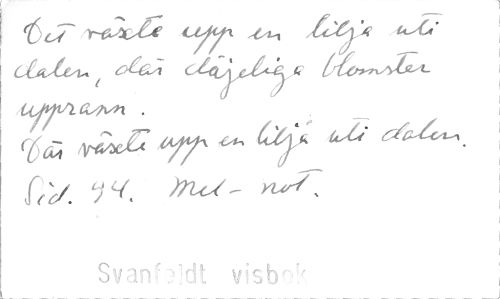 Det växte upp en lilja uti
dalen, där däjeliga blomster
upprann.
Där växte upp en lilja uti dalen.
Sid. 94. Mel-not.
Svanfeldt visbok